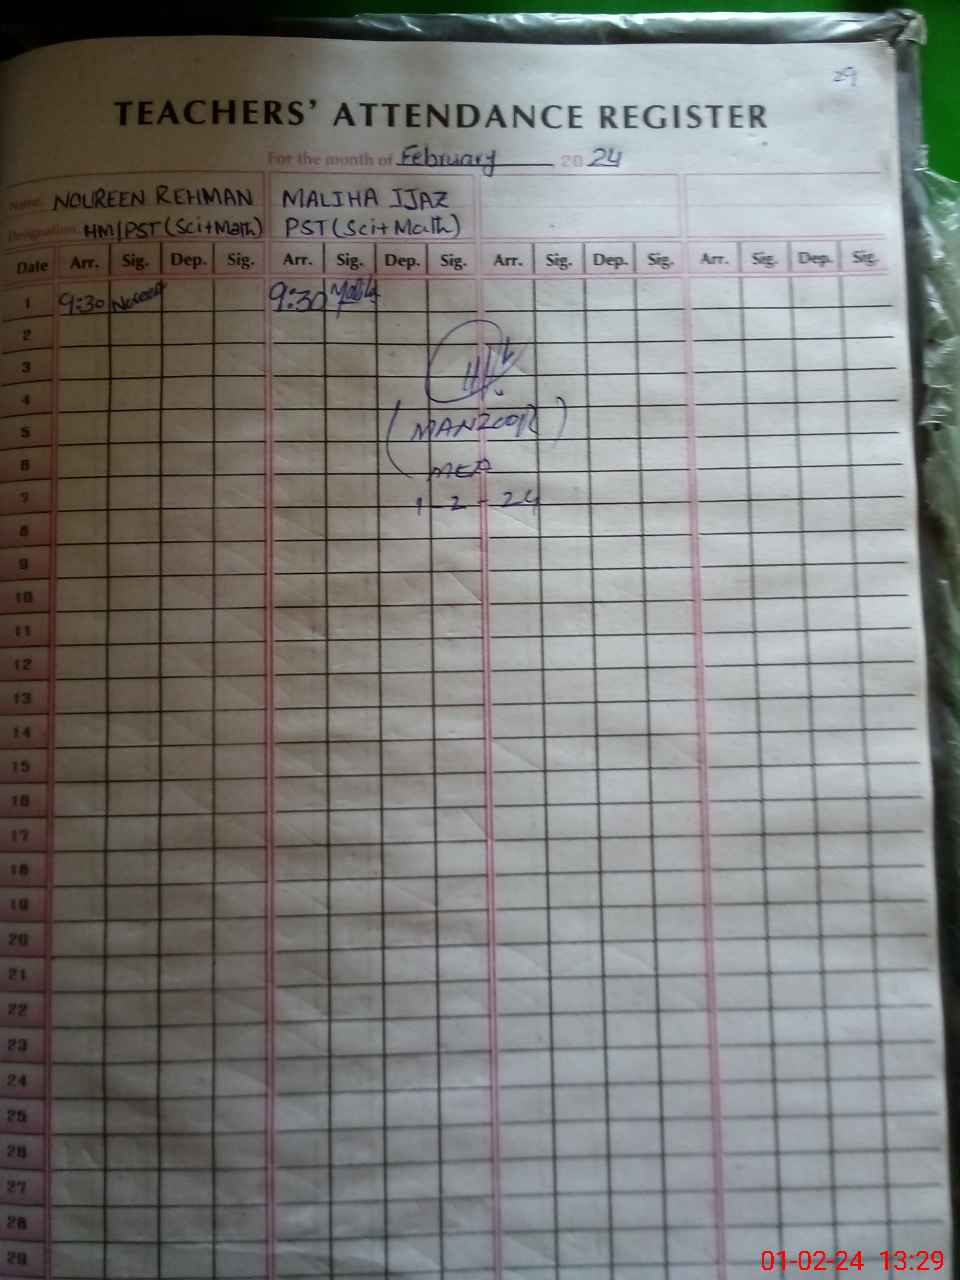 29
TEACHERS' ATTENDANCE REGISTER
For the month of February 20 24
Name: NOUREEN REHMAN MALIHA IJAZ
Designation: HM/PST (Sci+Math) PST (Sci+Math)
Date Arr. Sig. Dep. Sig. Arr. Sig. Dep. Sig. Arr. Sig. Dep. Sig. Arr. Sig. Dep. Sig.
1 9:30 Noreen 9:30 Maliha
2
3
4
5 (MANZOOR)
6 MEA
7 1-2-24
8
9
10
11
12
13
14
15
16
17
18
19
20
21
22
23
24
25
26
27
28
29
01-02-24 13:29